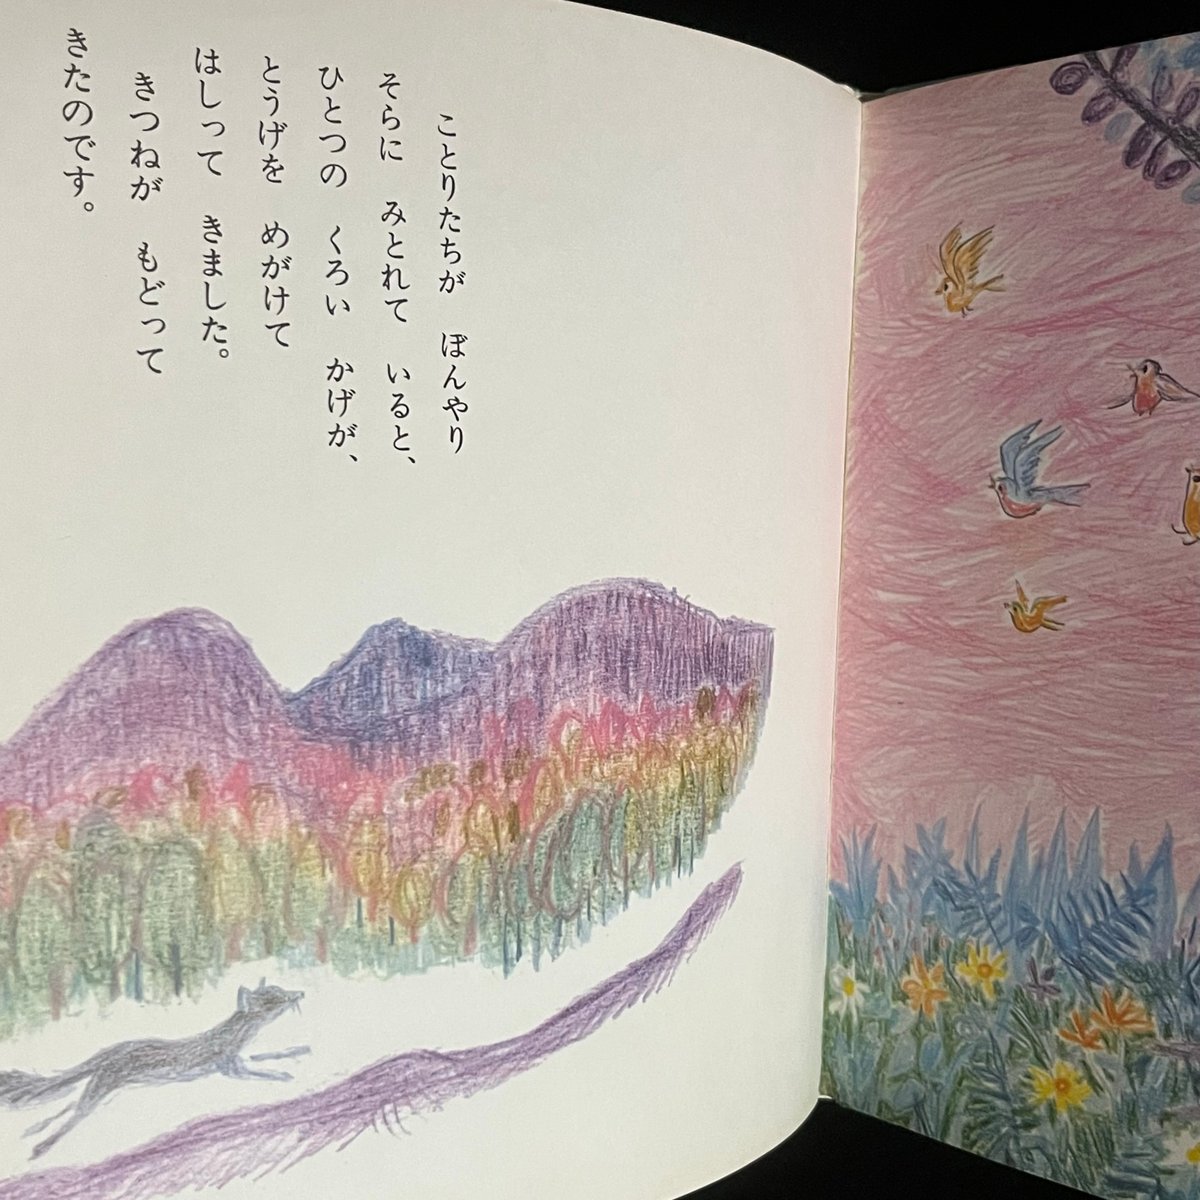 ことりたちが　ぼんやり
そらに　みとれて　いると、
ひとつの　くろい　かげが、
とうげを　めがけて
はしって　きました。
きつねが　もどって
きたのです。